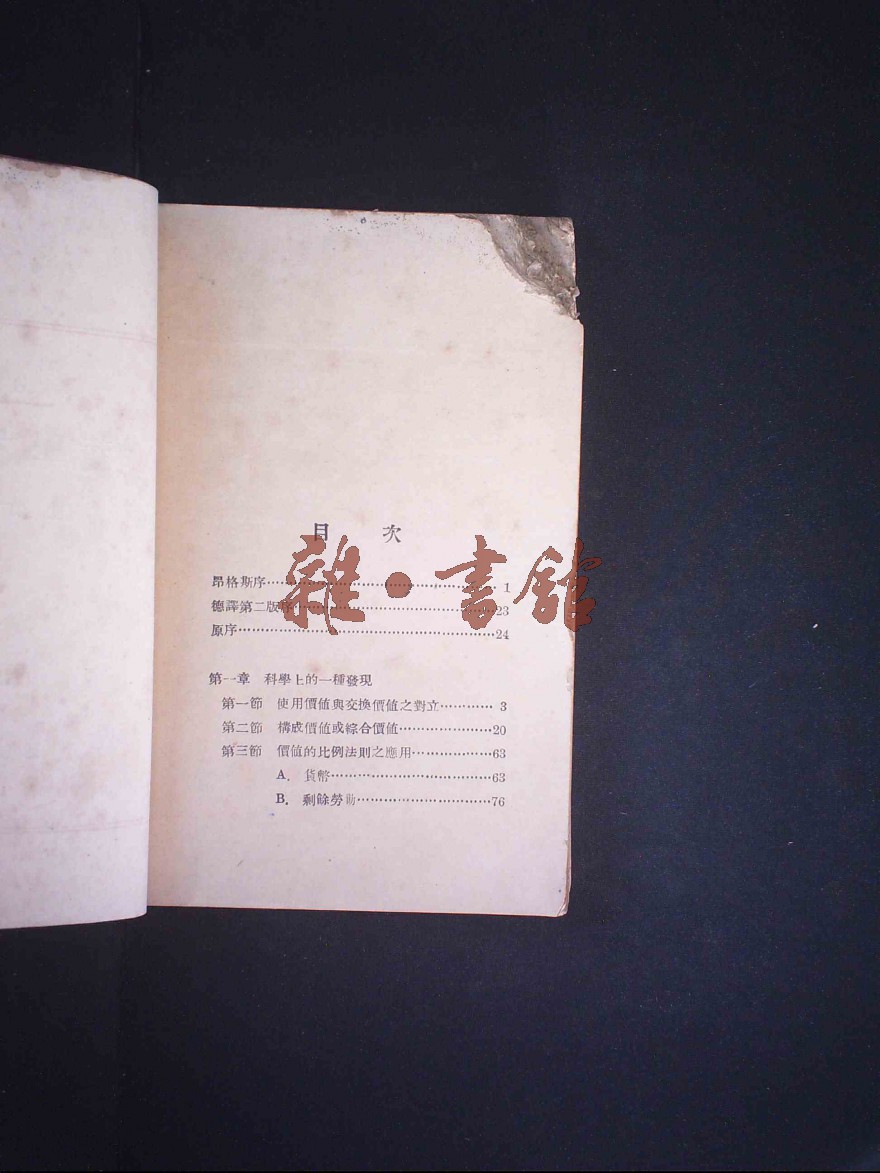 目 次
昂格斯序……………………………………1
德譯第二版序……………………………23
原序…………………………………………24
第一章 科學上的一種發現
第一節 使用價值與交換價值之對立…………3
第二節 構成價值或綜合價值………………20
第三節 價値的比例法則之應用……………63
A. 貨幣…………………………63
B. 剩餘勞動………………………76
雜·書館